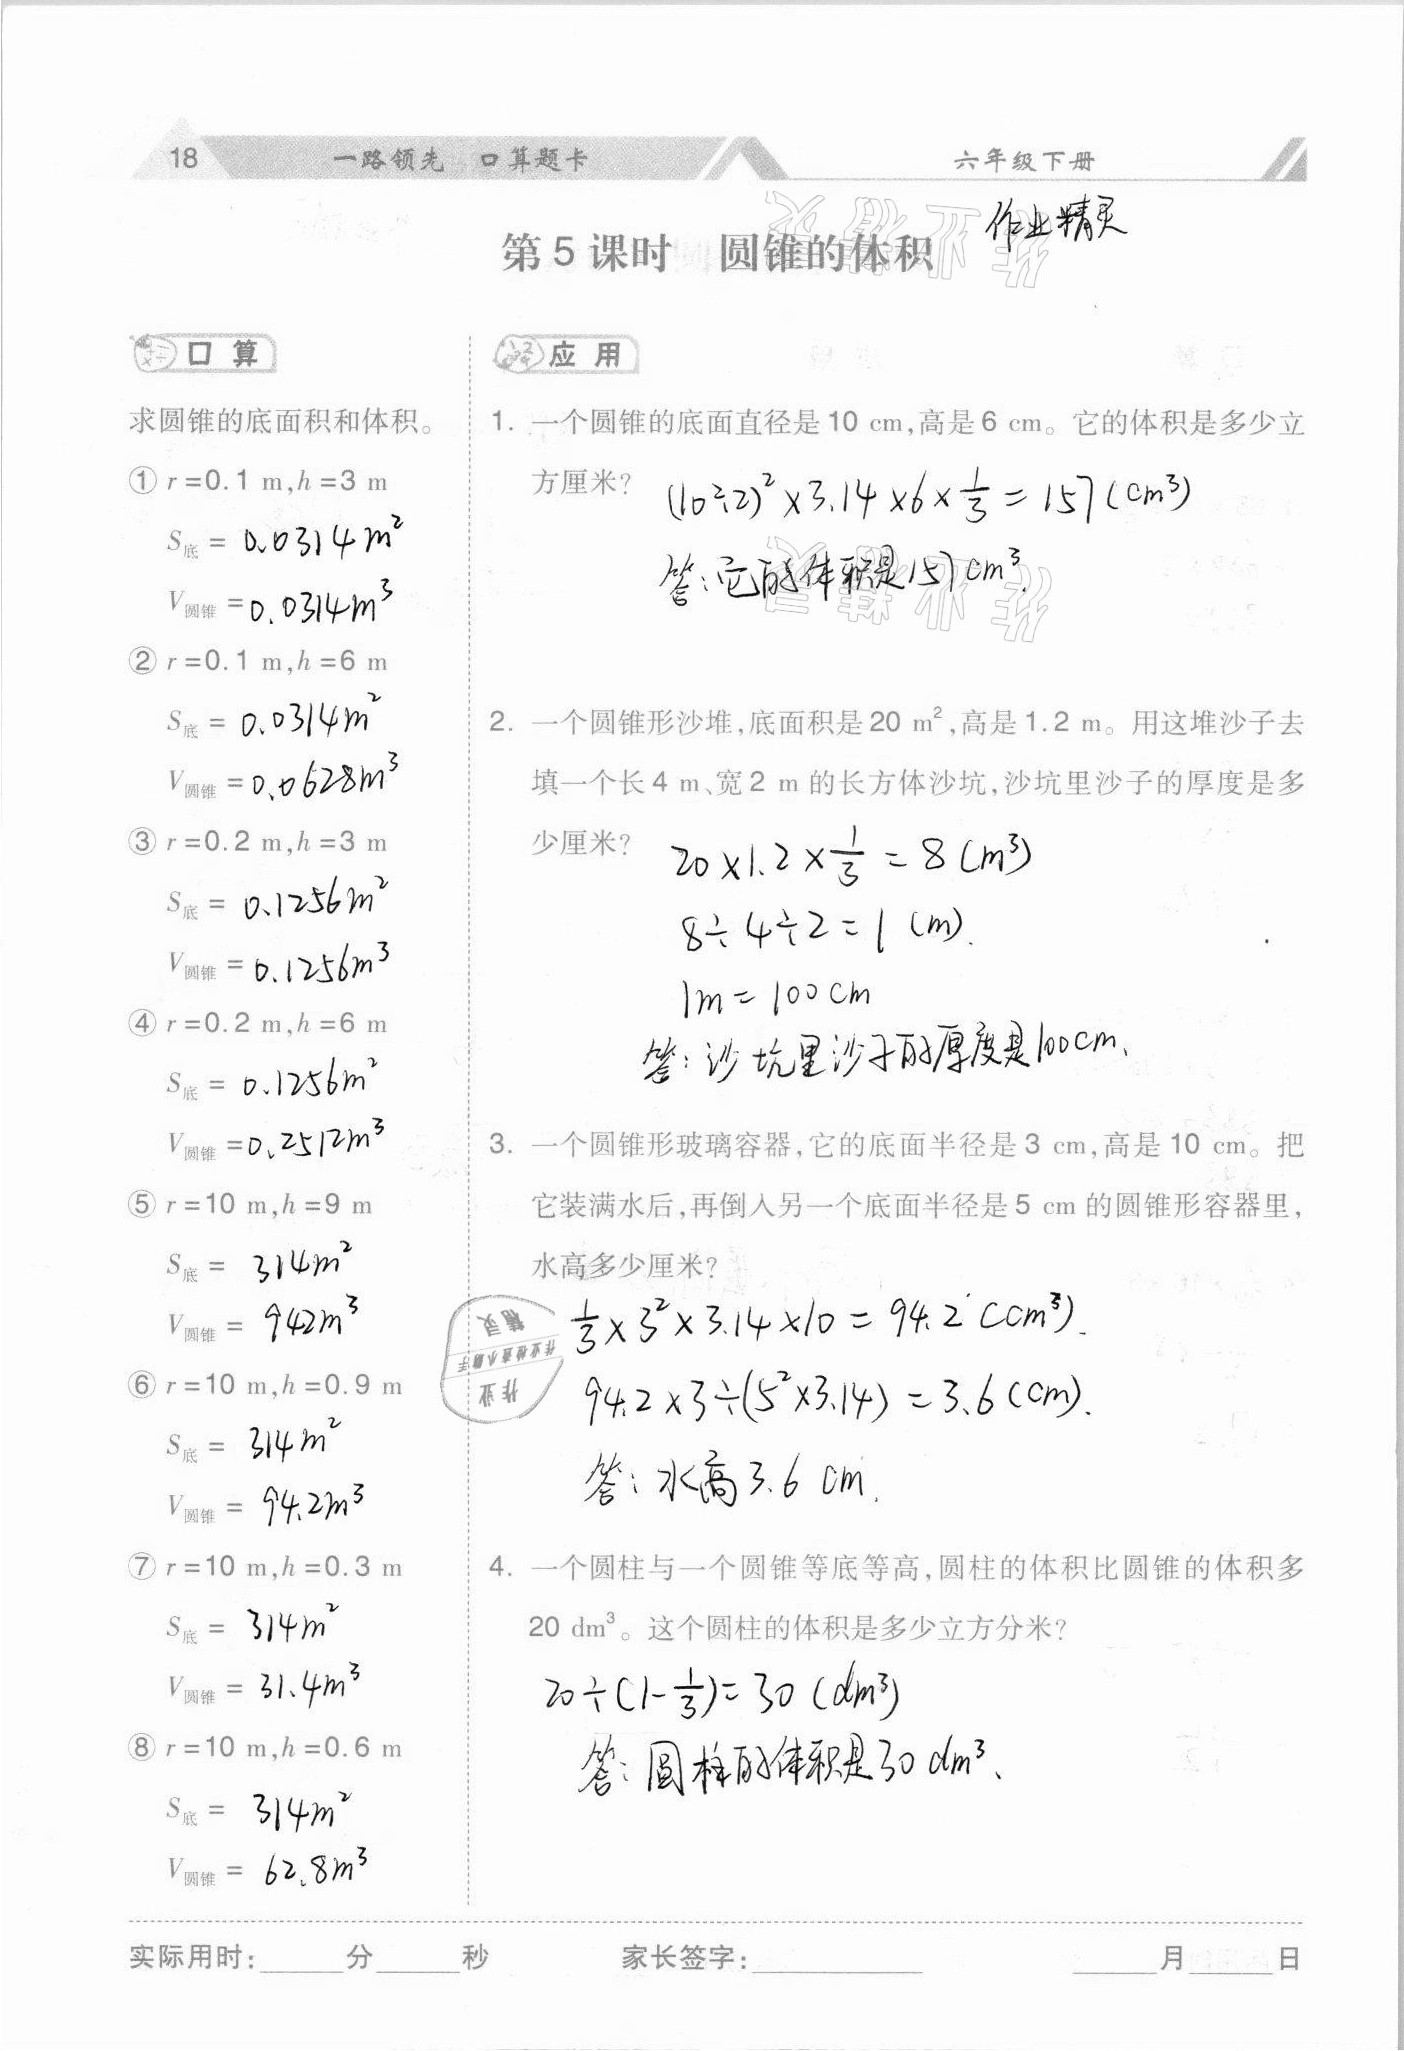 18 一路领先 口算题卡 六年级下册
作业精灵
第5课时 圆锥的体积
口算
求圆锥的底面积和体积。
① r=0.1 m,h=3 m
S底 = 0.0314m²
V圆锥 = 0.0314m³
② r=0.1 m,h=6 m
S底 = 0.0314m²
V圆锥 = 0.0628m³
③ r=0.2 m,h=3 m
S底 = 0.1256m²
V圆锥 = 0.1256m³
④ r=0.2 m,h=6 m
S底 = 0.1256m²
V圆锥 = 0.2512m³
⑤ r=10 m,h=9 m
S底 = 314m²
V圆锥 = 942m³
⑥ r=10 m,h=0.9 m
S底 = 314m²
V圆锥 = 94.2m³
⑦ r=10 m,h=0.3 m
S底 = 314m²
V圆锥 = 31.4m³
⑧ r=10 m,h=0.6 m
S底 = 314m²
V圆锥 = 62.8m³
应用
1. 一个圆锥的底面直径是10 cm,高是6 cm。它的体积是多少立
方厘米? (10÷2)²×3.14×6×1/3=157(cm³)
答:它的体积是157cm³.
2. 一个圆锥形沙堆,底面积是20 m²,高是1.2 m。用这堆沙子去
填一个长4 m、宽2 m的长方体沙坑,沙坑里沙子的厚度是多
少厘米? 20×1.2×1/3=8(m³)
8÷4÷2=1(m).
1m=100cm
答:沙坑里沙子的厚度是100cm.
3. 一个圆锥形玻璃容器,它的底面半径是3 cm,高是10 cm。把
它装满水后,再倒入另一个底面半径是5 cm的圆锥形容器里,
水高多少厘米?
1/3×3²×3.14×10=94.2(cm³).
94.2×3÷(5²×3.14)=3.6(cm).
答:水高3.6cm.
4. 一个圆柱与一个圆锥等底等高,圆柱的体积比圆锥的体积多
20 dm³。这个圆柱的体积是多少立方分米?
20÷(1-1/3)=30(dm³)
答:圆柱的体积是30dm³.
精灵
作业检查小助手
作业
作业精灵
作业精灵
实际用时:______分______秒 家长签字:____________ ______月______日